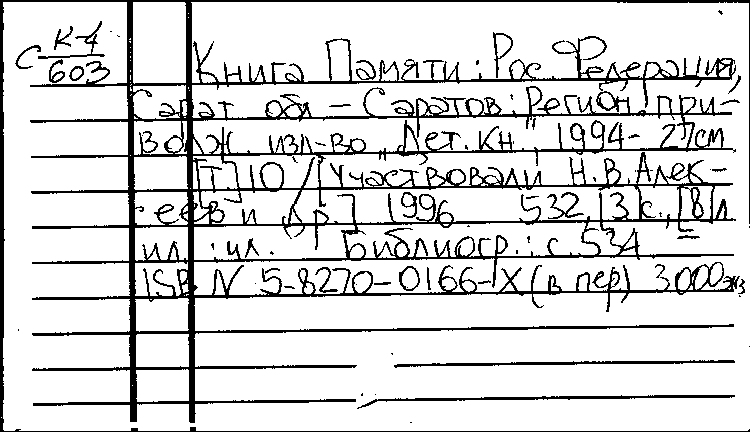 С К-4/603
Книга Памяти : Рос. Федерация,
Сарат обл – Саратов : Регион. При-
волж. изд-во „Дет. кн.", 1994- 27см
[Т.] 10 / [Участвовали Н.В. Алек-
сеев и др.] 1996 532, [3] с., [8] л
ил. : ил. Библиогр.: с. 534 =
ISBN 5-8270-0166-X (в пер) 3000экз